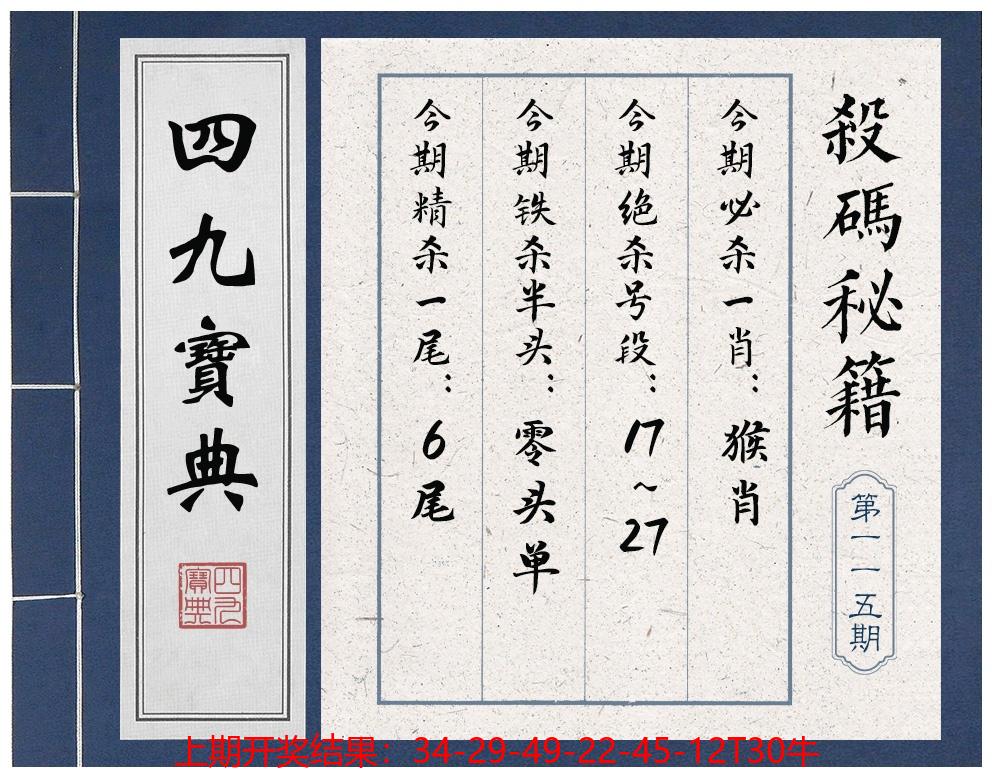 殺碼秘籍
第一一五期
今期必杀一肖：猴肖
今期绝杀号段：17~27
今期铁杀半头：零头单
今期精杀一尾：6尾
四九寶典
四九寶典
上期开奖结果：34-29-49-22-45-12T30牛